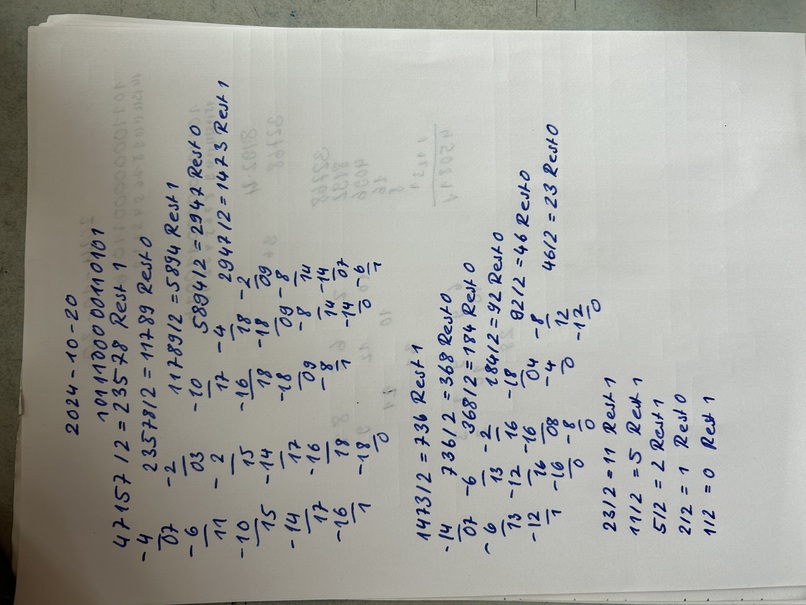 2024-10-20
1011100000110101
47157/2 = 23578 Rest 1
-4 23578/2 = 11789 Rest 0
07 -2 11789/2 = 5894 Rest 1
-6 03 -10 5894/2 = 2947 Rest 0
11 -2 17 -4 2947/2 = 1473 Rest 1
-10 15 -16 18 -2
15 -14 18 -18 09
-14 17 -18 09 -8
17 -16 09 -8 14
-16 18 -8 14 -14
1 -18 1 -14 07
0 0 -6
1
1473/2 = 736 Rest 1
-14 736/2 = 368 Rest 0
07 -6 368/2 = 184 Rest 0
-6 13 -2 184/2 = 92 Rest 0
13 -12 16 -18 92/2 = 46 Rest 0
-12 16 -16 04 -8 46/2 = 23 Rest 0
1 -16 08 -4 12
0 -8 0 -12
0 0
23/2 = 11 Rest 1
11/2 = 5 Rest 1
5/2 = 2 Rest 1
2/2 = 1 Rest 0
1/2 = 0 Rest 1